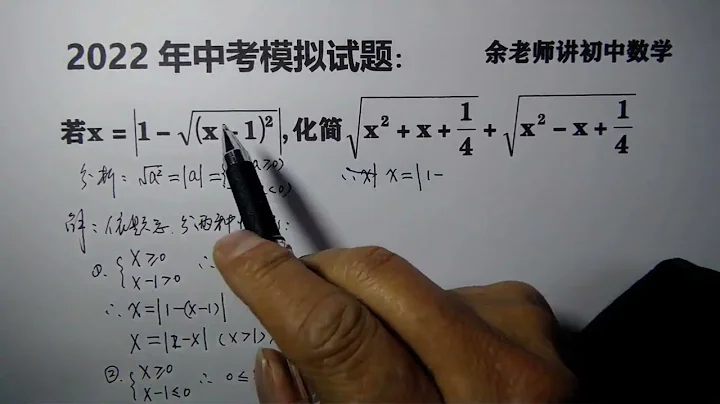 2022年中考模拟试题:
余老师讲初中数学
若x = |1 − √(x − 1)²|, 化简 √x² + x + 1/4 + √x² − x + 1/4
分析: √a² = |a| = { a≥0) <0)
∴ x = |1-
解: 依题意, 分两种
①. { x ≥ 0 x-1>0 ∴
∴ x = |1-(x-1)|
x = |2-x| (x>1)
②. { x ≥ 0 x-1≤0 ∴ 0≤